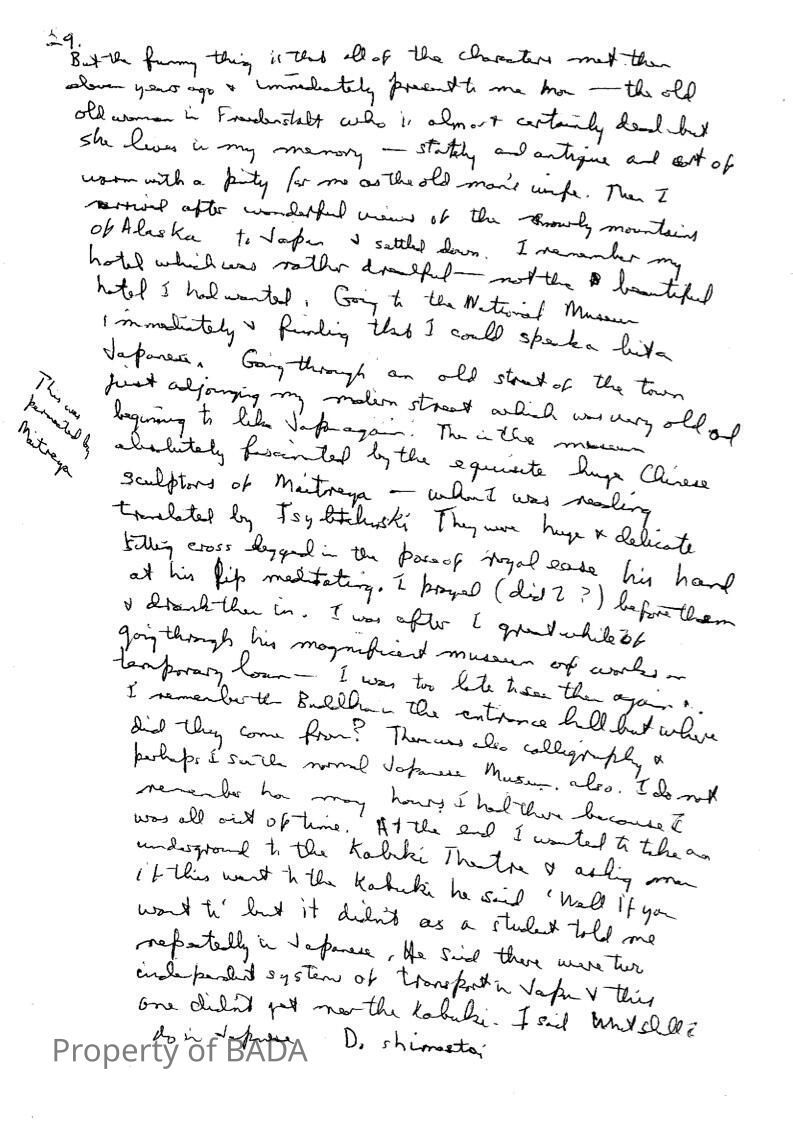 59.
But the funny thing is that all of the characters met then
eleven years ago & immediately present to me now — the old
old woman in Freudenstadt who is almost certainly dead but
she lives in my memory — stately and antique and sort of
warm with a pity for me as the old man's wife. Then I
arrived after wonderful views of the snowly mountains
of Alaska to Japan & settled down. I remember my
hotel which was rather dreadful — not the beautiful
hotel I had wanted. Going to the National Museum
immediately & finding that I could speak a bit a
Japanese. Going through an old street of the town
just adjoining my modern street which was very old and
beginning to like Japan again. Then in the museum
absolutely fascinated by the equisite huge Chinese
sculptors of Maitreya — whom I was reading
translated by They were huge & delicate
sitting cross legged in the pose of royal ease his hand
at his lip meditating. I prayed (did I?) before them
& drank them in. I was after I great while of
going through his magnificent museum of works in
temporary loan — I was too late to see them again..
I remember the Buddha in the entrance hall but where
did they come from? There was also calligraphy &
perhaps I saw the normal Japanese Museum. also. I do not
remember how many hours I had there because I
was all out of time. At the end I wanted to take an
underground to the Kabuki Theatre & asking man
if this went to the Kabuki he said 'Well If you
want to' but it didn't as a student told me
repeatedly in Japanese. He said there were two
independent system of transport in Japan & this
one didn't get near the Kabuki. I said What shall I
do in Japanese D. shimastai
This was
permeated by
Maitreya
Property of BADA